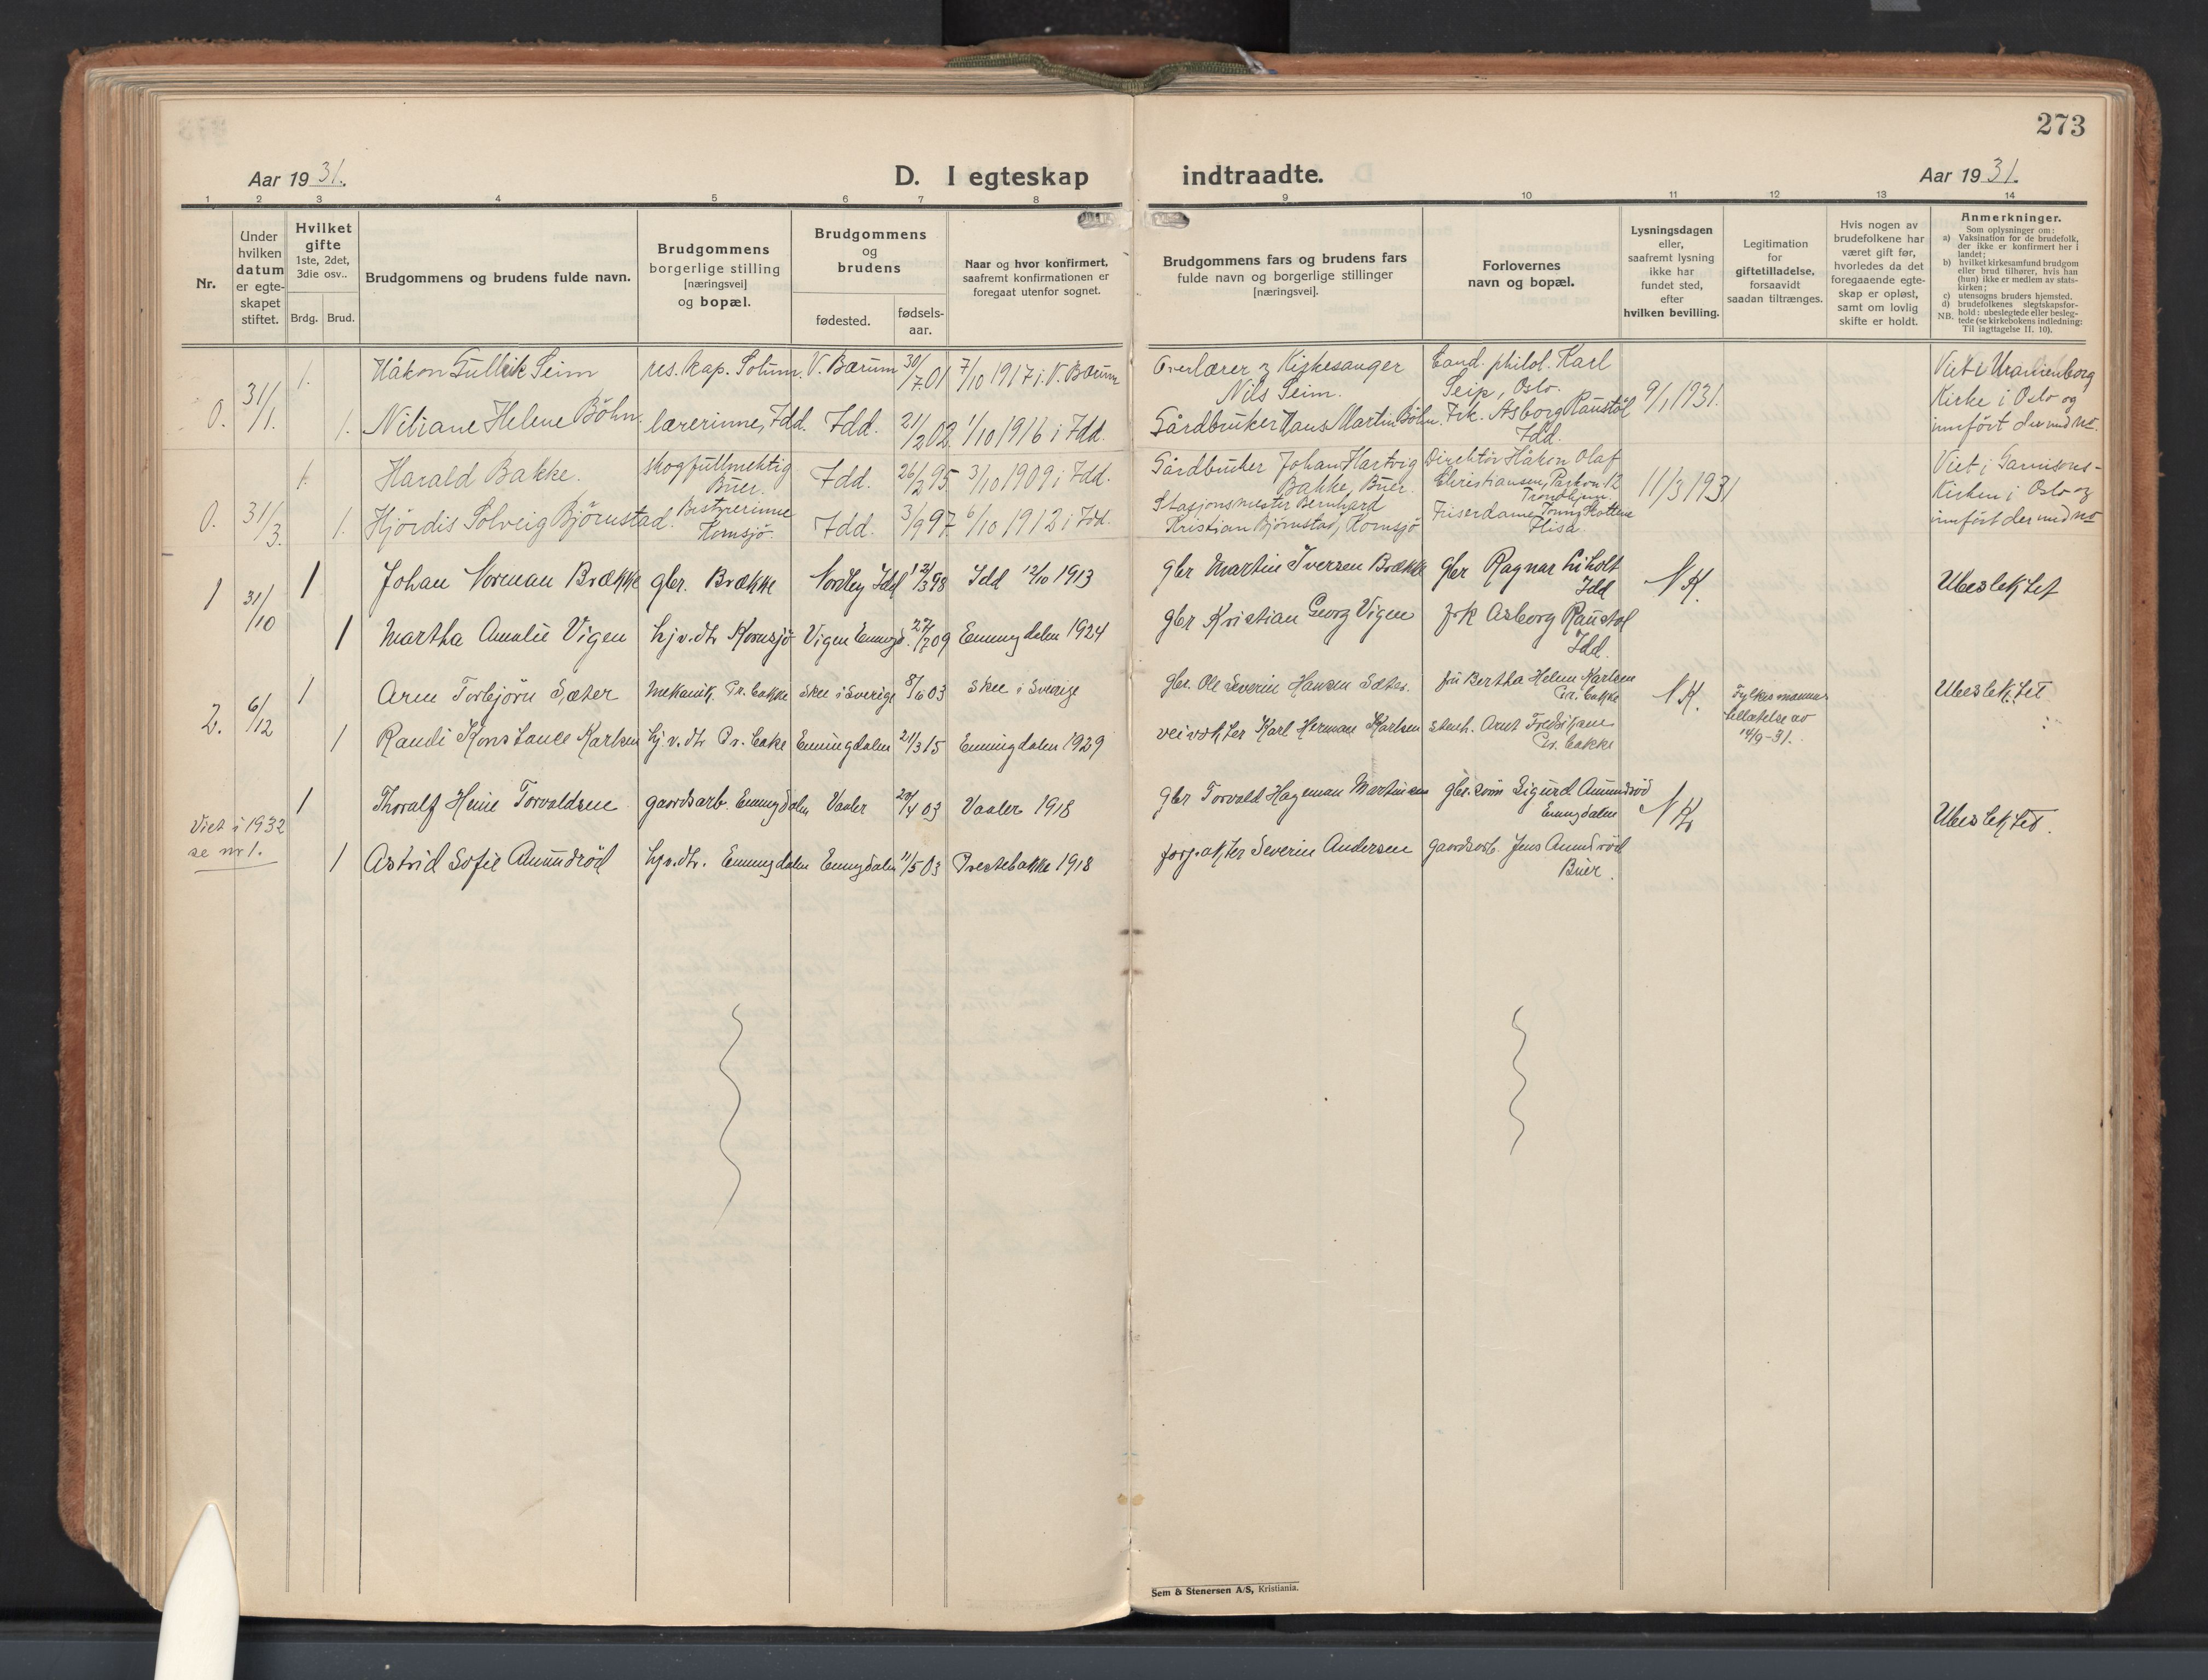 273
Aar 1931.
D. I egteskap
indtraadte.
Aar 1931.
1 2 3 4 5 6 7 8 9 10 11 12 13 14
Nr.
Under
hvilken
datum
er egte-
skapet
stiftet.
Hvilket
gifte
1ste, 2det,
3die osv..
Brdg. Brud.
Brudgommens og brudens fulde navn.
Brudgommens
borgerlige stilling
[næringsvei]
og bopæl.
Brudgommens
og
brudens
fødested.
fødsels-
aar.
Naar og hvor konfirmert,
saafremt konfirmationen er
foregaat utenfor sognet.
Brudgommens fars og brudens fars
fulde navn og borgerlige stillinger
[næringsvei].
Forlovernes
navn og bopæl.
Lysningsdagen
eller,
saafremt lysning
ikke har
fundet sted,
efter
hvilken bevilling.
Legitimation
for
giftetilladelse,
forsaavidt
saadan tiltrænges.
Hvis nogen av
brudefolkene har
været gift før,
hvorledes da det
foregaaende egte-
skap er opløst,
samt om lovlig
skifte er holdt.
Anmerkninger.
Som oplysninger om:
a) Vaksination for de brudefolk,
der ikke er konfirmert her i
landet;
b) hvilket kirkesamfund brudgom
eller brud tilhører, hvis han
(hun) ikke er medlem av stats-
kirken;
c) utensogns bruders hjemsted.
d) brudefolkenes slegtskapsfor-
hold: ubeslegtede eller besleg-
NB. tede (se kirkebokens indledning:
Til iagttagelse II. 10).
0. 31/1.
1. Håkon Gullik Seim res. kap. Solum. V. Bærum 30/7.01 7/10 1917 i V. Bærum
Overlærer & Kirkesanger
Nils Seim.
Cand. philol. Karl
Seip, Oslo.
1. Niliane Helene Böhn. lærerinne, Idd. Idd. 21/2 02 1/10 1916 i Idd.
Gårdbruker Hans Martin Böhn.
Frk. Asborg Raustöl
Idd.
9/1 1931.
Viet i Uranienborg
Kirke i Oslo og
innfört der med no.
0. 31/3.
1. Harald Bakke. skogfullmektig
Buer. Idd. 26/2 95 3/10 1909 i Idd.
Gårdbruker Johan Hartvig
Bakke, Buer.
Direktör Håkon Olaf
Christiansen, 12
Trondhjem.
1. Hjördis Solveig Björnstad. Bestyrerinne
Kornsjö. Idd. 3/9 97 6/10 1912 i Idd.
Stasjonsmester Bernhard
Kristian Björnstad, Kornsjö
Friserdame
Flisa.
11/3 1931
Viet i Garnisons-
Kirken i Oslo og
innfört der med no
1 31/10
1 Johan Norman Brække gbr. Brække Nordby Idd 12/3 98 Idd 12/10 1913
gbr Martin Iversen Brække
gbr Ragnar Liholt
Idd
N K.
Ubeslektet
1 Martha Amalie Vigen hjv.dtr Kornsjö Vigen Enningd. 27/7 09 Enningdalen 1924
gbr Kristian Georg Vigen
frk Asborg Raustöl
Idd.
2. 6/12
1 Arne Torbjörn Sæter mekanik. Pr. bakke Skee i Sverige 8/6 03 Skee i Sverige
gbr. Ole Severin Hansen Sæter.
fru Bertha Helene Karlsen
Pr. bakke
N K.
Fylkesmannens
tillatelse av
14/9-31.
Ubeslektet
1 Randi Konstance Karlsen hj.v.dtr Pr. bakke Enningdalen 21/3 15 Enningdalen 1929
veivokter Karl Herman Karlsen
stenh. Arnt Fredriksen
Pr. bakke
Viet i 1932
se nr 1.
1 Thoralf Heine Torvaldsen gaardsarb. Enningdalen Vaaler 20/4 03 Vaaler 1918
gbr Torvald Hageman Martinsen
gbr.sönn Sigurd Amundröd
Enningdalen
N K
Ubeslektet.
1 Astrid Sofie Amundröd hjv.dtr. Enningdalen Enningdalen 11/5 03 Prestebakke 1918
forp.akter Severin Andersen
gaardsarb. Jens Amundröd
Buer.
Sem & Stenersen A/S, Kristiania.